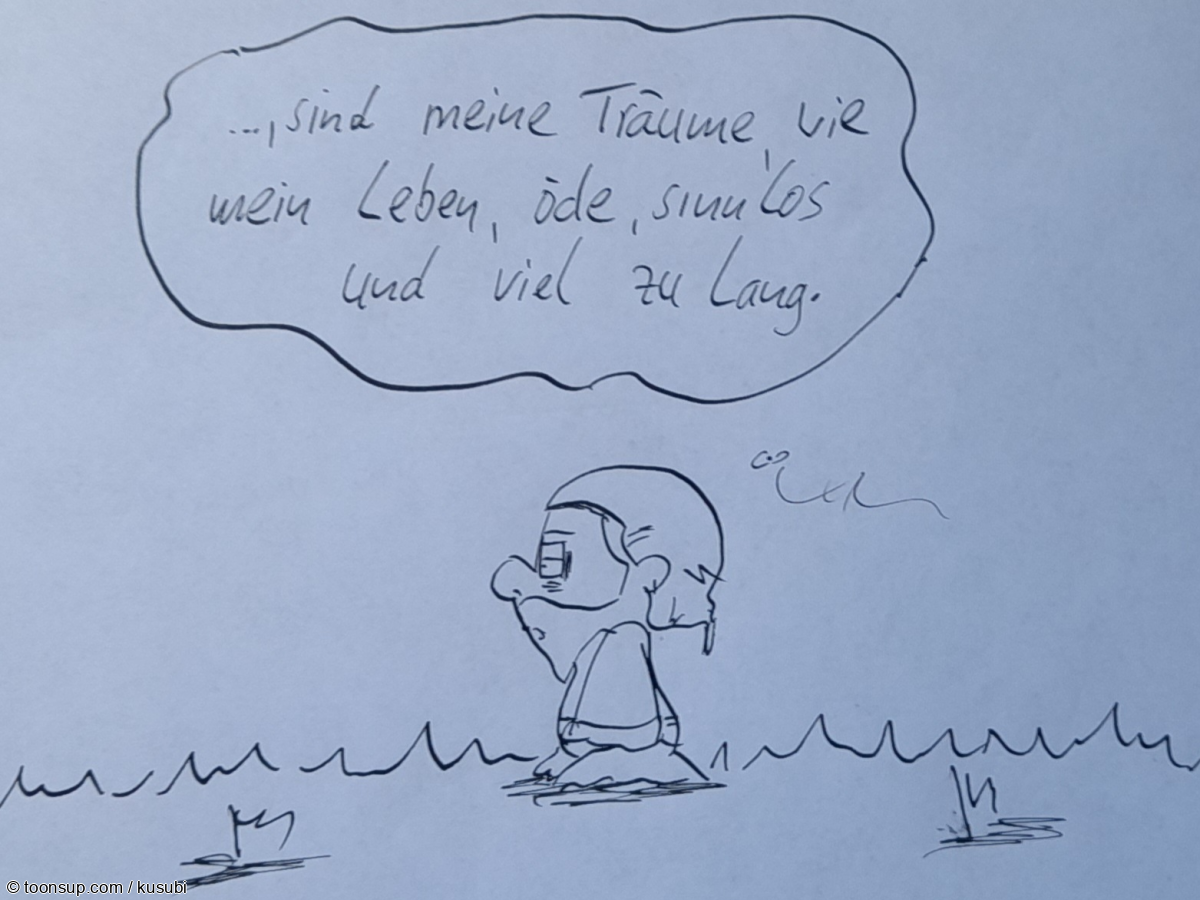 ..., sind meine Träume, vie
mein Leben, öde, sinnlos
und viel zu Lang.
© toonsup.com / kusubi